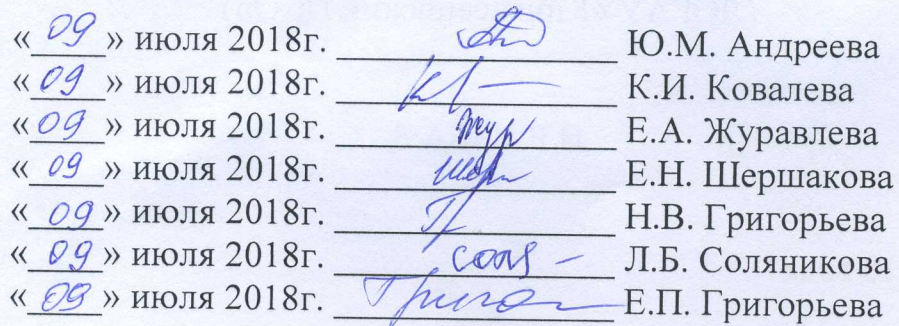 « 09 » июля 2018г. Ю.М. Андреева
« 09 » июля 2018г. К.И. Ковалева
« 09 » июля 2018г. Жур Е.А. Журавлева
« 09 » июля 2018г. Е.Н. Шершакова
« 09 » июля 2018г. Н.В. Григорьева
« 09 » июля 2018г. Л.Б. Соляникова
« 09 » июля 2018г. Е.П. Григорьева